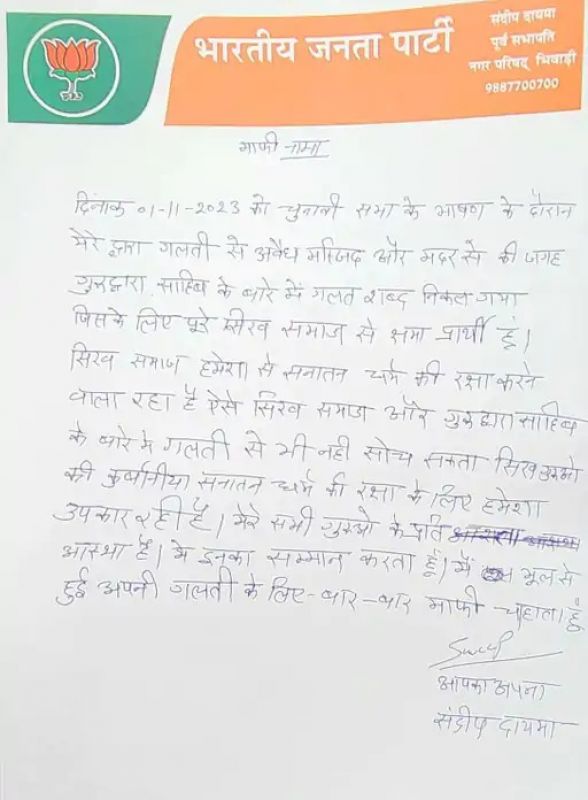 भारतीय जनता पार्टी
संदीप दायमा
पूर्व सभापति
नगर परिषद् भिवाड़ी
9887700700
माफी नामा
दिनाक 01-11-2023 को चुनावी सभा के भाषण के दौरान
मेरे द्वारा गलती से अवैध मस्जिद और मदरसे की जगह
गुरुद्वारा साहिब के बारे में गलत शब्द निकल गया
जिसके लिए पूरे सिख समाज से क्षमा प्रार्थी हूं।
सिख समाज हमेशा से सनातन धर्म की रक्षा करने
वाला रहा है ऐसे सिख समाज और गुरुद्वारा साहिब
के बारे मे गलती से भी नही सोच सकता सिख
की कुर्बानीया सनातन धर्म की रक्षा के लिए हमेशा
उपकार रही है। मेरे सभी गुरुओ के प्रति
आस्था है। मे इनका सम्मान करता हूँ। मैं भूल से
हुई अपनी गलती के लिए-बार-बार माफी चाहाता हूं
आपका अपना
संदीप दायमा